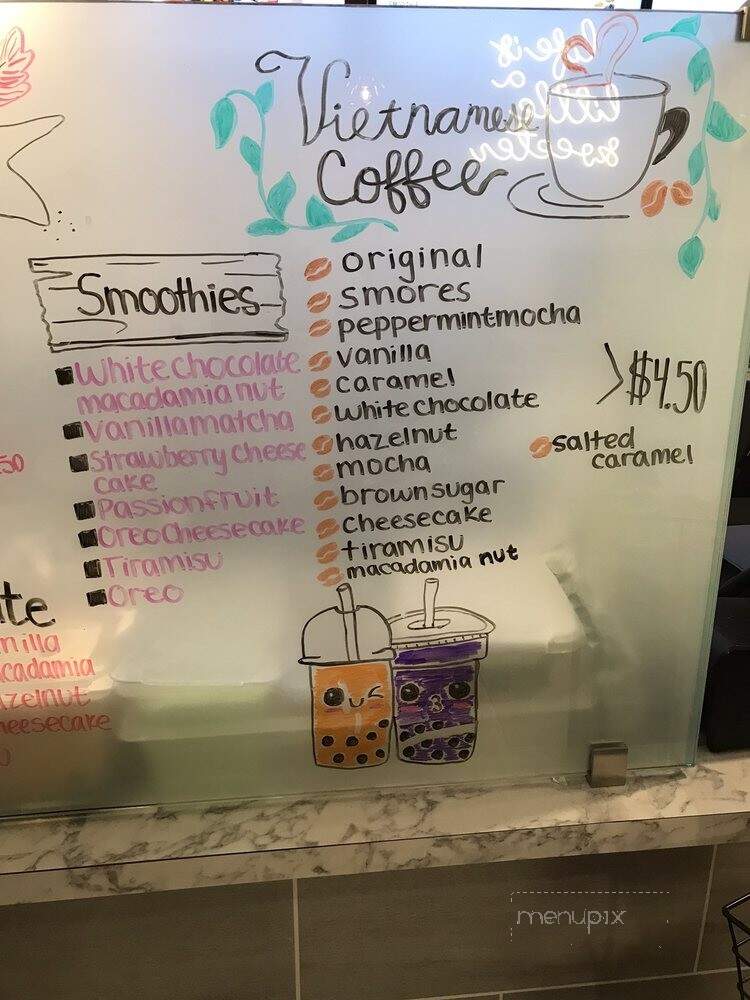 life is
a
little
sweeter
Vietnamese
Coffee
Smoothies
White chocolate
macadamia nut
Vanilla matcha
Strawberry Cheese
cake
Passionfruit
Oreo Cheesecake
Tiramisu
Oreo
original
smores
peppermint mocha
vanilla
caramel
white chocolate
hazelnut
mocha
brown sugar
cheesecake
tiramisu
macadamia nut
>$4.50
salted
caramel
.50
te
nilla
cadamia
zelnut
heesecake
menupix